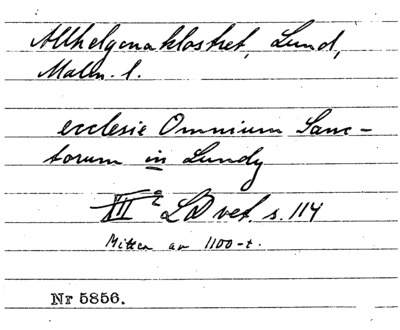 Allhelgonaklostret, Lund,
Malm. l.
ecclesie Omnium Sanc-
torum in Lundy
XII e LD vet. s. 114
Mitten av 1100-t.
Nr 5856.